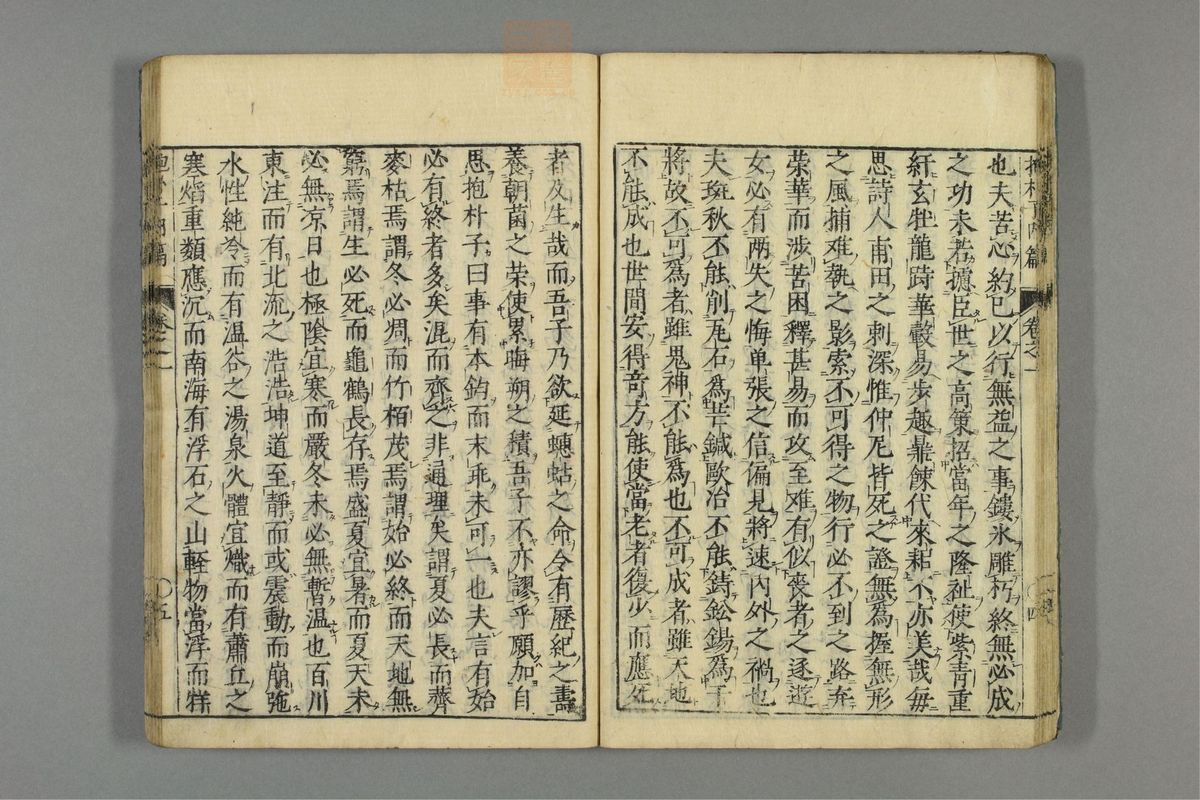 抱朴子内篇 卷之一 〇四
也夫苦心約已以行無益之事鏤氷雕朽終無必成
之功未若攄臣世之高策招當年之隆祉使紫青重
紆玄牡龍跱華轂易歩趣鼎餗代來耜不亦美哉毎
思詩人甫田之刺深惟仲尼皆死之證無為握無形
之風捕难執之影索不可得之物行必不到之路弃
榮華而渉苦困釋甚易而攻至难有似喪者之逐遊
女必有两失之悔单張之信偏見將速内外之禍也
夫班秋不能削瓦石為芒鍼歐冶不能鋳鈆錫為干
將故不可為者雖鬼神不能為也不可成者雖天地
不能成也世間安得竒方能使當老者復少而應死
者反生哉而吾子乃欲延蟪蛄之命令有歷紀之壽
養朝菌之榮使累晦朔之積吾子不亦謬乎願加自
思抱朴子曰事有本鈞而末乖未可一也夫言有始
必有終者多矣混而齊之非通理矣謂夏必長而薺
麥枯焉謂冬必凋而竹栢茂焉謂始必終而天地無
窮焉謂生必死而龜鶴長存焉盛夏宜暑而夏天未
必無凉日也極陰宜寒而嚴冬未必無暫温也百川
東注而有北流之浩浩坤道至靜而或震動而崩弛
水性純冷而有温谷之湯泉火體宜熾而有蕭丘之
寒熖重類應沉而南海有浮石之山軽物當浮而牂
卷之一 〇五